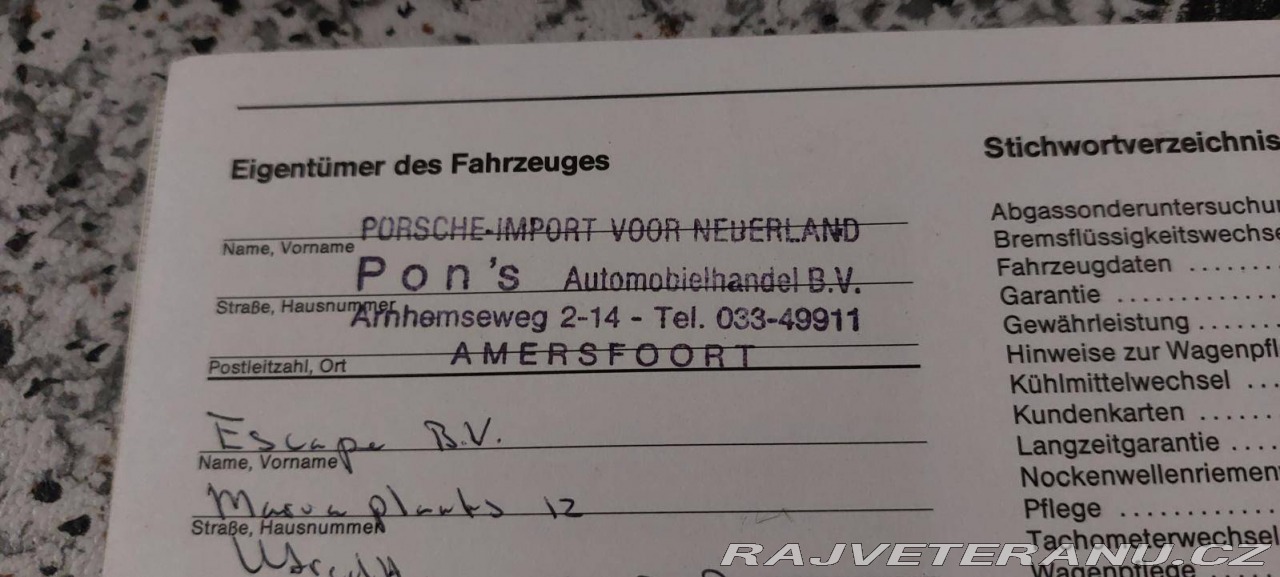 Eigentümer des Fahrzeuges
PORSCHE-IMPORT VOOR NEDERLAND
Name, Vorname
Pon's Automobielhandel B.V.
Straße, Hausnummer
Arnhemseweg 2-14 - Tel. 033-49911
AMERSFOORT
Postleitzahl, Ort
Escape B.V.
Name, Vorname
12
Straße, Hausnummer
Stichwortverzeichnis
Abgassonderuntersuchu
Bremsflüssigkeitswechse
Fahrzeugdaten ........
Garantie .............
Gewährleistung .......
Hinweise zur Wagenpfl
Kühlmittelwechsel ...
Kundenkarten ......
Langzeitgarantie ....
Nockenwellenriemen
Pflege ............
Tachometerwechsel
Wagenpflege
RAJVETERANU.CZ